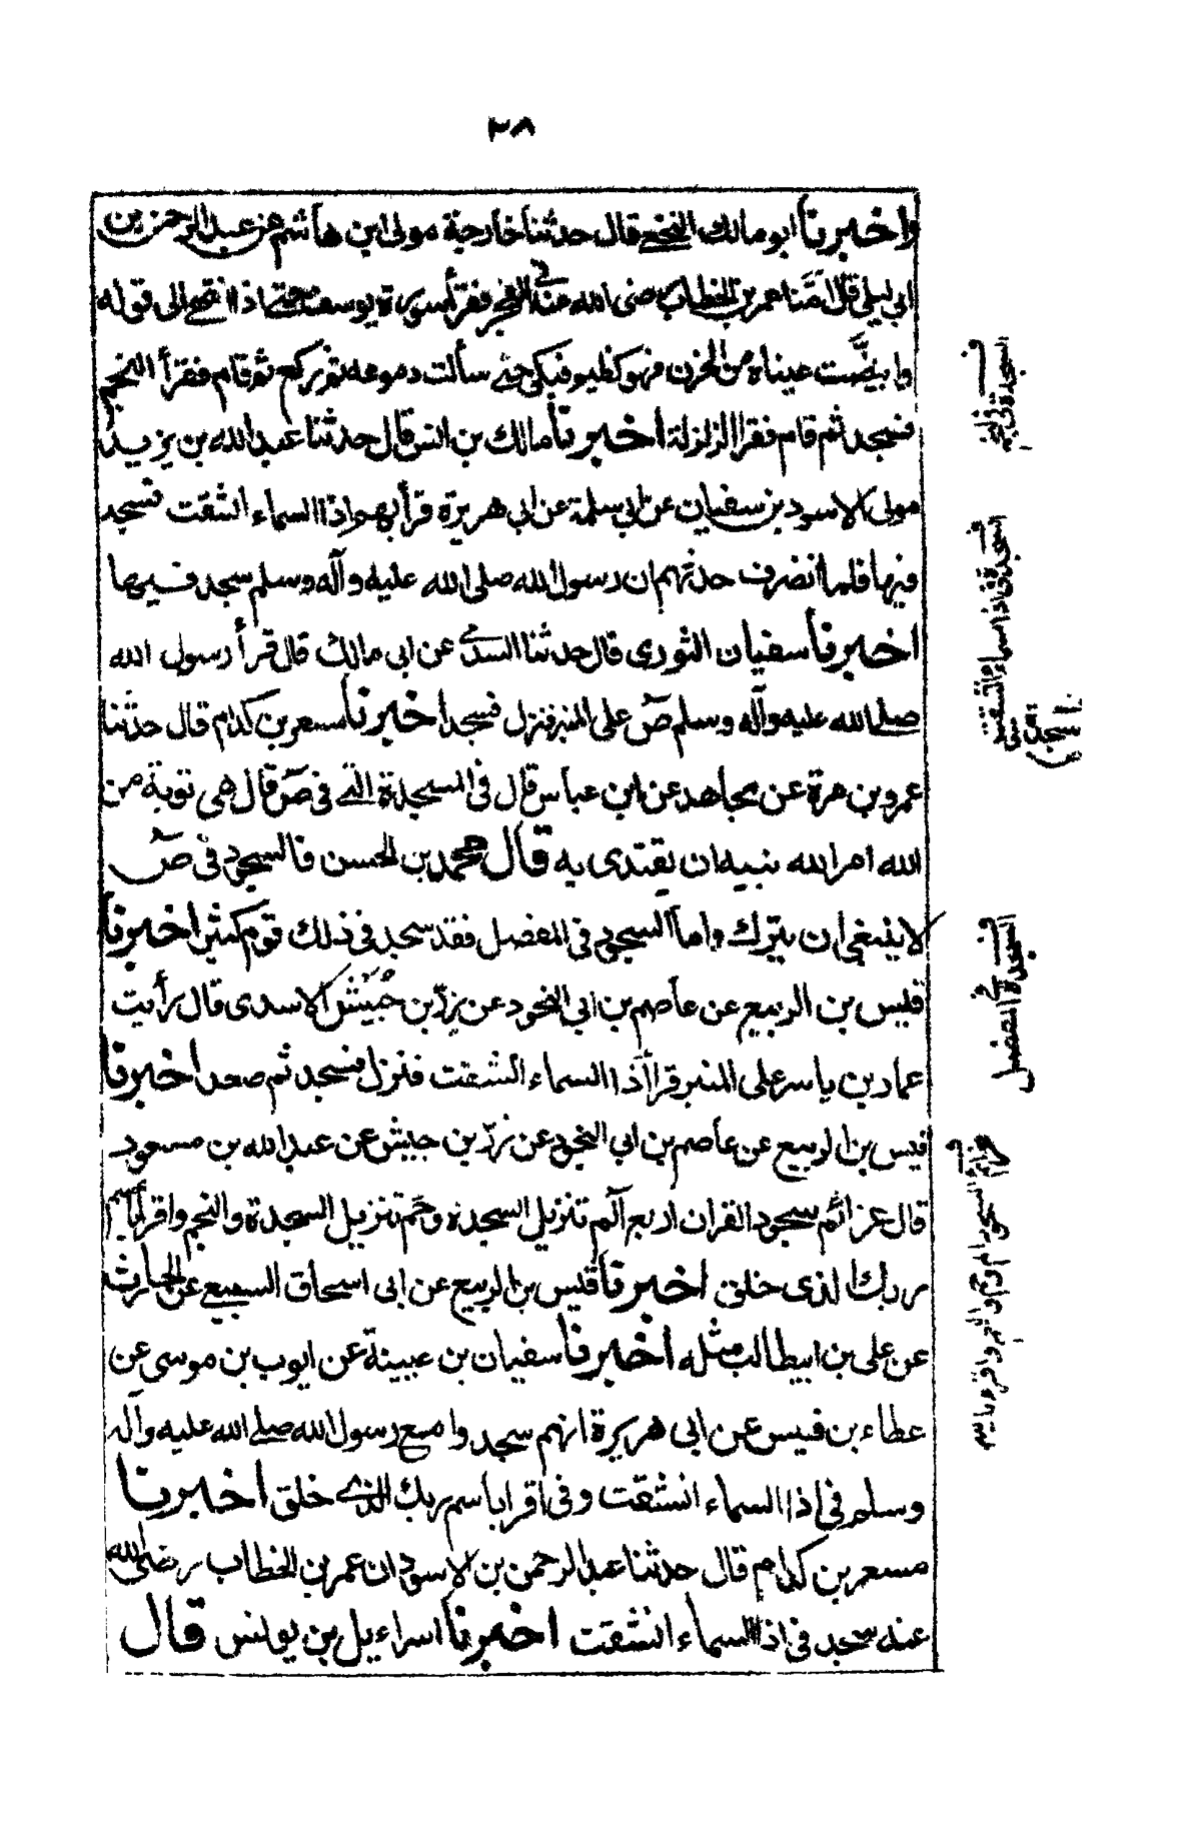 ٢٨
واخبرنا ابو مالك النخعي قال حدثنا خارجة مولى ابن هاشم عن عبد الرحمن بن
ابي ليلى قال امّنا عمر بن الخطاب رضي الله عنه في الفجر فقرأ سورة يوسف حتى اذا انتهى الى قوله
وابيضّت عيناه من الحزن فهو كظيم فبكى حتى سالت دموعه ثم ركع ثم قام فقرأ النجم
فسجد ثم قام فقرا الزلزلة اخبرنا مالك بن انس قال حدثنا عبد الله بن يزيد
مولى الاسود بن سفيان عن ابي سلمة عن ابي هريرة قرأ بهم اذا السماء انشقت فسجد
فيها فلما انصرف حدثهم ان رسول الله صلى الله عليه وآله وسلم سجد فيها
اخبرنا سفيان الثوري قال حدثنا السدي عن ابي مالك قال قرأ رسول الله
صلى الله عليه وآله وسلم صٓ على المنبر فنزل فسجد اخبرنا مسعر بن كدام قال حدثنا
عمرو بن مرة عن مجاهد عن ابن عباس قال في السجدة التي في صٓ قال هي توبة من
الله امر الله نبيه ان يقتدى به قال محمد بن الحسن فالسجود في صٓ
لا ينبغي ان يترك واما السجود في المفصل فقد سجد في ذلك قوم كثير اخبرنا
قيس بن الربيع عن عاصم بن ابي النجود عن زرّ بن حُبَيْش الاسدى قال رأيت
عمار بن ياسر على المنبر قرأ اذا السماء انشقت فنزل فسجد ثم صعد اخبرنا
قيس بن الربيع عن عاصم بن ابي النجود عن زرّ بن حبيش عن عبد الله بن مسعود
قال عزائم سجود القران اربع آلم تنزيل السجدة وحٓم تنزيل السجدة والنجم واقرأ باسم
ربك الذى خلق اخبرنا قيس بن الربيع عن ابى اسحاق السبيعي عن الحارث
عن على بن ابيطالب مثله اخبرنا سفيان بن عيينة عن ايوب بن موسى عن
عطاء بن قيس عن ابى هريرة انهم سجدوا مع رسول الله صلى الله عليه وآله
وسلم في اذا السماء انشقت وفي اقرا باسم ربك الذي خلق اخبرنا
مسعر بن كدام قال حدثنا عبد الرحمن بن الاسود ان عمر بن الخطاب رضي الله
عنه سجد في اذا السماء انشقت اخبرنا اسراءيل بن يونس قال
السجدة في النجم
السجدة في اذا السماء انشقت
السجدة في المفصل
عزائم السجود الم وحم والنجم واقرء باسم